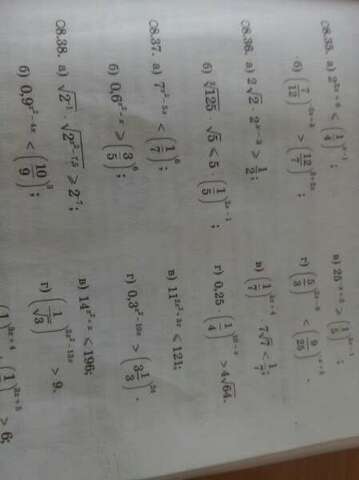 08.35. а) 2^{3x+6} < (1/4)^{x-1}; в) 25^{-x+3} > (1/5)^{3x-1};
б) (7/12)^{-2x+3} > (12/7)^{3+2x}; г) (5/3)^{2x-8} < (9/25)^{-x+3}.
08.36. а) 2√2 · 2^{x-3} ⩾ 1/2; в) (1/7)^{3x+4} · 7√7 < 1/7;
б) ∛125 · √5 ⩽ 5 · (1/5)^{2x-1}; г) 0,25 · (1/4)^{10-x} > 4√64.
08.37. а) 7^{x²-5x} < (1/7)^6; в) 11^{2x²+3x} ⩽ 121;
б) 0,6^{x²-x} ⩾ (3/5)^6; г) 0,3^{x²-10x} > (3 1/3)^{24}.
08.38. а) √2^{-1} · √2^{x²-7,5} ⩾ 2^{-7}; в) 14^{x²+x} ⩽ 196;
б) 0,9^{x²-4x} < (10/9)^3; г) (1/√3)^{2x²-13x} > 9.
> 6;